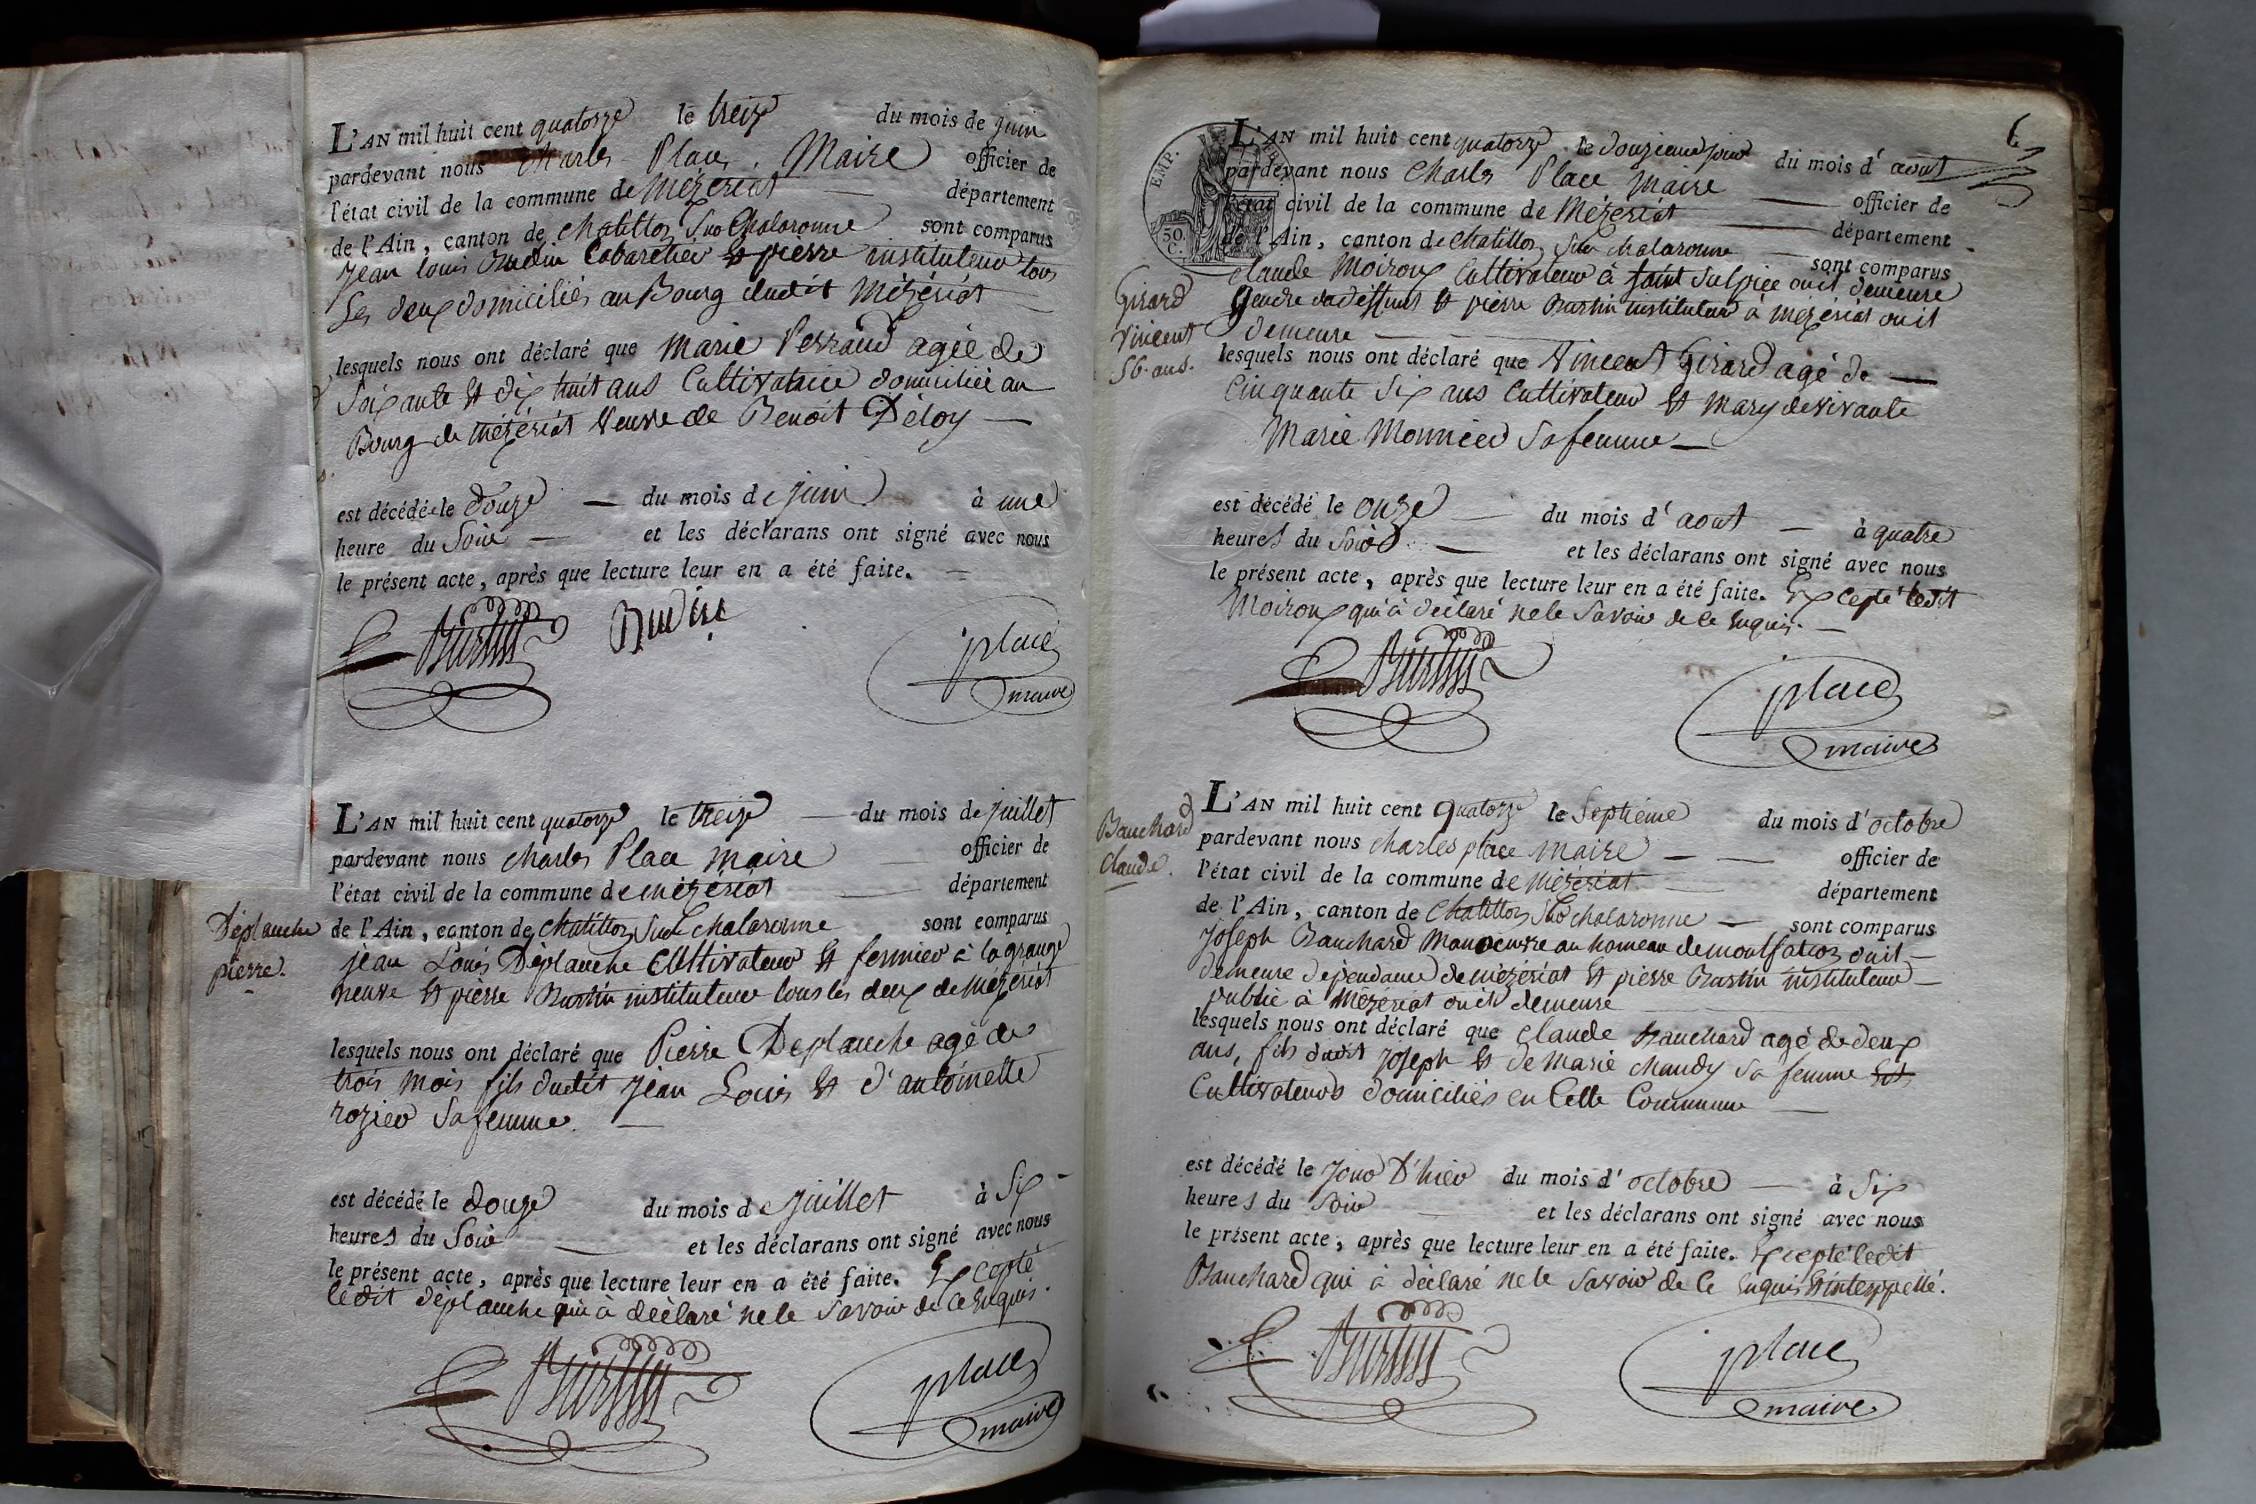 L'AN mil huit cent quatorze le treize du mois de juin
pardevant nous Charles Place, Maire officier de
l'état civil de la commune de Mézériat département
de l'Ain, canton de Chatillon Sur Chalaronne sont comparus
Jean Louis Cabaretier et pierre instituteur tous
Les deux domiciliés au Bourg dudit Mézériat
lesquels nous ont déclaré que Marie Perraud agée de
Soixante et dix huit ans Cultivatrice domiciliée au
Bourg de Mézériat Veuve de Benoit Déloy
est décédée le Douze du mois de juin à une
heure du Soir et les déclarans ont signé avec nous
le présent acte, après que lecture leur en a été faite.
place
maire
L'AN mil huit cent quatorze le treize du mois de juillet
pardevant nous Charles Place maire officier de
l'état civil de la commune de Mézériat département
Déplanche
pierre.
de l'Ain, canton de Chatillon Sur Chalaronne sont comparus
jean Louis Déplanche Cultivateur et fermier à la grange
neuve et pierre Burtin instituteur tous les deux de Mézériat
lesquels nous ont déclaré que Pierre Deplanche agé de
trois mois fils dudit Jean Louis et d'antoinette
rozier Sa femme.
est décédé le douze du mois de juillet à Six
heures du Soir et les déclarans ont signé avec nous
le présent acte, après que lecture leur en a été faite. Excepté
ledit déplanche qui à déclaré ne le Savoir de ce Enquis.
Burtin
place
maire
6
EMP.
50.
C.
L'AN mil huit cent quatorze le douzieme jour du mois d'aout
pardevant nous Charles Place Maire officier de
l'état civil de la commune de Mézériat département
de l'Ain, canton de Chatillon Sur chalaronne sont comparus
Girard
Vincent
56 ans.
Claude Moiroux Cultivateur à Saint Sulpice ou il demeure
Gendre du deffunt et pierre Burtin instituteur à Mézériat ou il
demeure
lesquels nous ont déclaré que Vincent Girard agé de
Cinquante Six ans Cultivateur et mary devivante
Marie Monnier Sa femme
est décédé le onze du mois d'aout à quatre
heures du Soir et les déclarans ont signé avec nous
le présent acte, après que lecture leur en a été faite. Excepté ledit
Moiroux qui à déclaré ne le Savoir de ce Enquis.
Burtin
place
maire
L'AN mil huit cent quatorze le Septième du mois d'octobre
Bauchard
Claude.
pardevant nous charles place maire officier de
l'état civil de la commune de Mézériat département
de l'Ain, canton de Chatillon Sur chalaronne sont comparus
Joseph Bauchard Manoeuvre au hameau de montfalcon ou il
demeure dépendance de mézériat et pierre Burtin instituteur
public à Mézériat ou il demeure
lesquels nous ont déclaré que Claude Bauchard agé de deux
ans, fils dudit Joseph et de Marie chaudy sa femme
Cultivateurs domiciliés en Cette Commune
est décédé le Jour D'hier du mois d'octobre à Six
heures du Soir et les déclarans ont signé avec nous
le présent acte, après que lecture leur en a été faite. Excepté ledit
Bauchard qui à déclaré ne le Savoir de ce Enquis et interppellé.
Burtin
place
maire